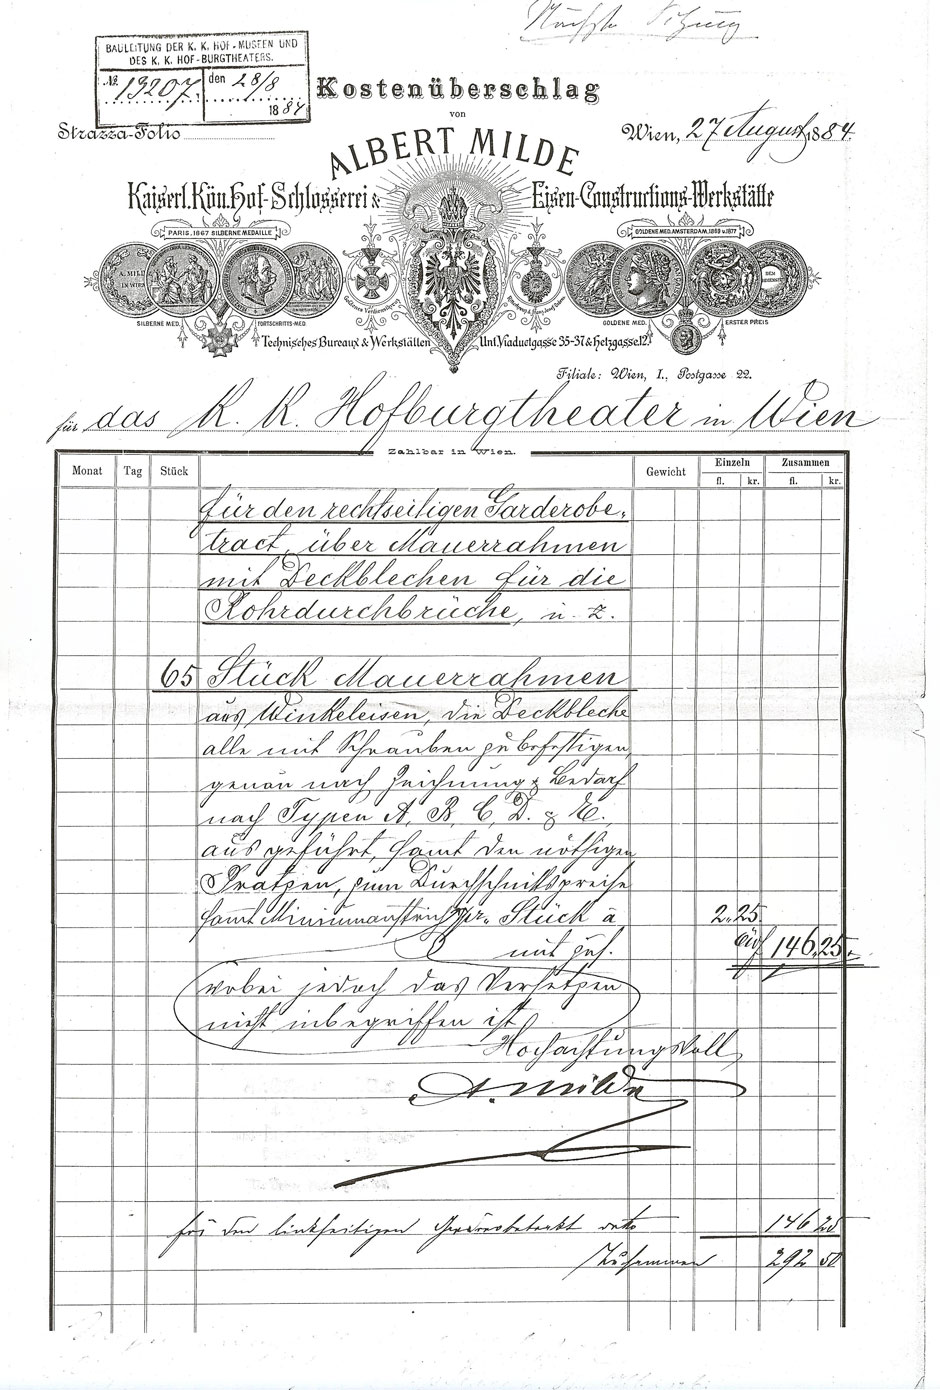 Nächste Sitzung
BAULEITUNG DER K. K. HOF-MUSEEN UND
DES K. K. HOF-BURGTHEATERS.
No. 13207. den 28/8
1884
Strazza-Folio
Kostenüberschlag
von
Wien, 27 August 1884.
ALBERT MILDE
Kaiserl. Kön. Hof-Schlosserei & Eisen-Constructions-Werkstätte
PARIS, 1867 SILBERNE MEDAILLE
GOLDENE MED. AMSTERDAM, 1869 u. 1877
A. MILDE
IN WIEN
DEM
SILBERNE MED.
FORTSCHRITTS-MED.
Goldenes Verdienstkreuz
GOLDENE MED.
ERSTER PREIS
Technisches Bureaux & Werkstätten Unt. Viaductgasse 35-37 & Hetzgasse 12.
Filiale: Wien, I., Postgasse 22.
für das K. K. Hofburgtheater in Wien
Zahlbar in Wien.
Monat Tag Stück Gewicht Einzeln Zusammen
fl. kr. fl. kr.
für den rechtseitigen Garderobe-
tract, über Mauerrahmen
mit Deckblechen für die
Rohrdurchbrüche, u. z.
65 Stück Mauerrahmen
aus Winkeleisen, die Deckbleche
alle mit Schrauben zu befestigen,
genau nach Zeichnung & Bedarf
nach Typen A, B, C, D. & E.,
ausgeführt, sammt den nöthigen
Pratzen, zum Durchschnittspreise
sammt Miniumanstrich pr. Stück à 2.25.
146.25.
wobei jedoch das Versetzen
nicht inbegriffen ist
Hochachtungsvoll
A. Milde
für den linkseitigen Garderobetrakt detto 146 25
Zusammen 292 50